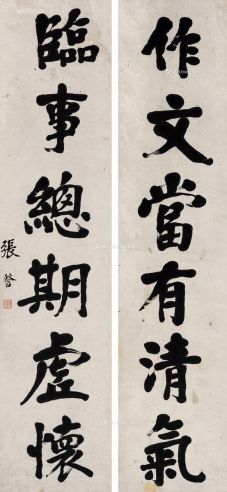 作文當有清氣
臨事總期虛懷
張謇